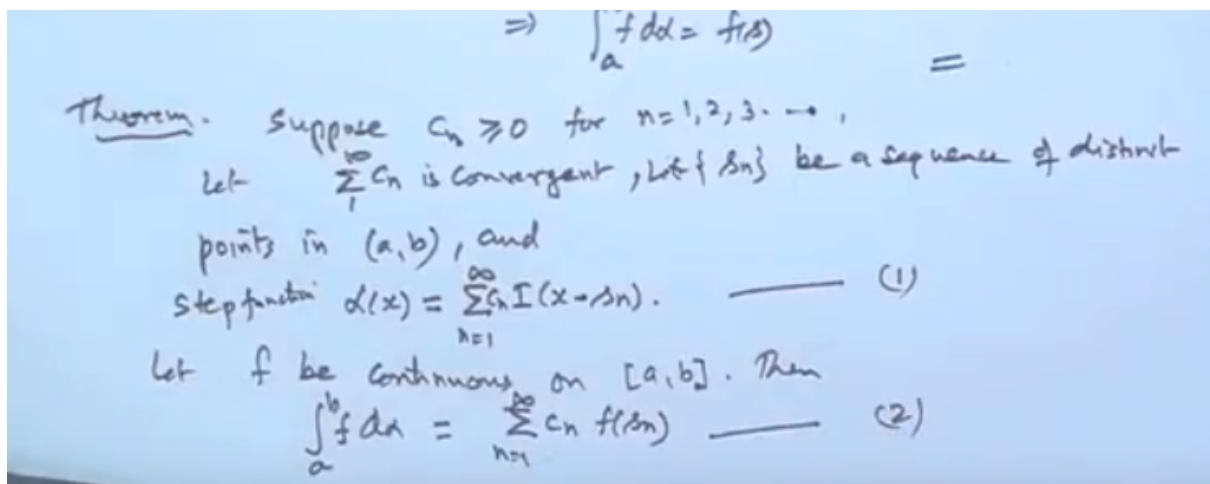 ⇒ ∫_a^b f dα = f(s)
=
Theorem. Suppose Cn ≥ 0 for n = 1, 2, 3 . - - . ,
Let ∑_1^∞ Cn is convergent, Let {sn} be a sequence of distinct
points in (a, b), and
step function α(x) = ∑_{n=1}^∞ Cn I(x - sn). ——— (1)
Let f be continuous on [a, b]. Then
∫_a^b f dα = ∑_{n=1}^∞ Cn f(sn) ——— (2)